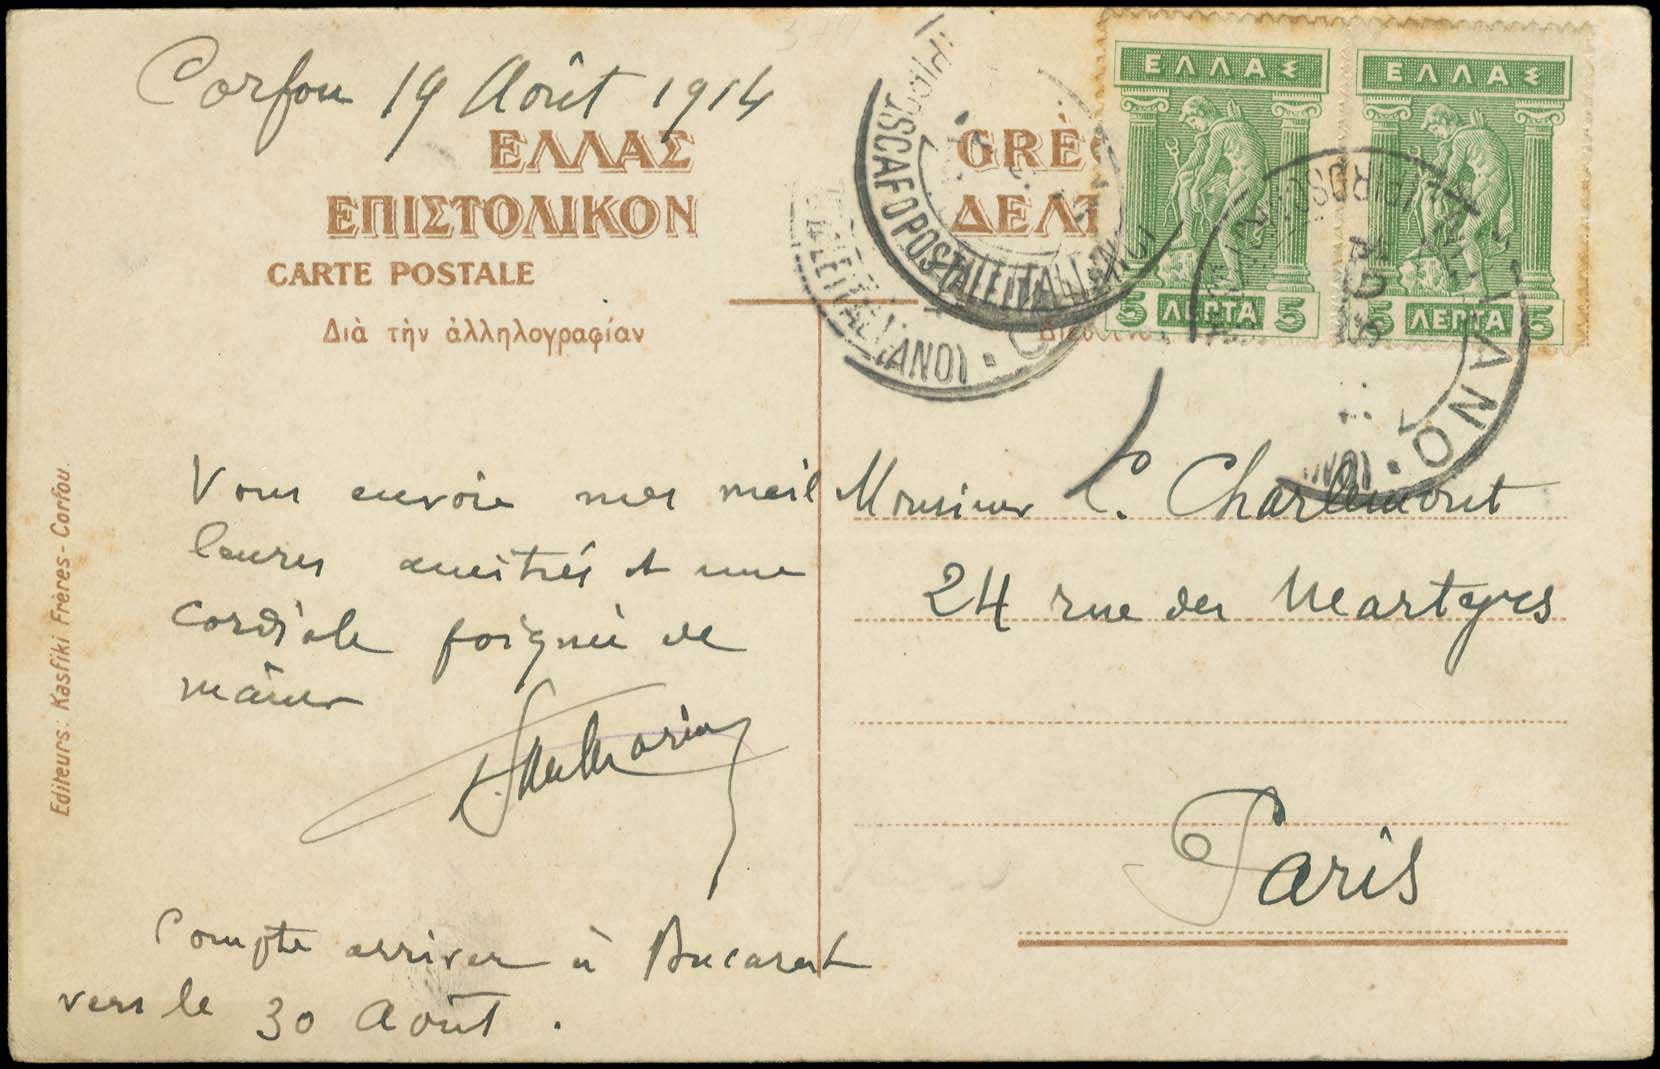 Corfou 19 Août 1914
ΕΛΛΑΣ
ΕΠΙΣΤΟΛΙΚΟΝ
CARTE POSTALE
Διὰ τὴν ἀλληλογραφίαν
GRÈ
ΔΕΛΤ
ΕΛΛΑΣ
5 ΛΕΡΤΑ 5
ΕΛΛΑΣ
5 ΛΕΡΤΑ 5
PIROSCAFO POSTALE ITALIANO
ITALIANO
Editeurs: Kasfiki Frères-Corfou.
Vous envoie mes meil
leures amitiés et une
cordiale poignée de
mains
Compte arriver à Bucarest
vers le 30 Août.
Monsieur C. Charlemont
24 rue des Martyrs
Paris